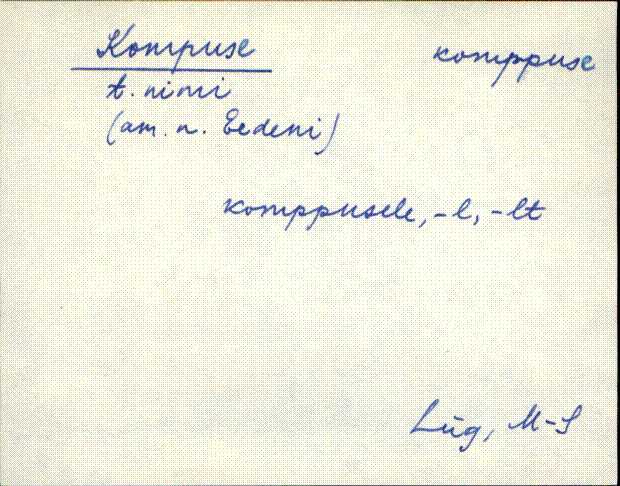 Kompuse komppuse
t. nimi
(am. n. Eedeni)
komppusele, -l, -lt
Lüg, M-S